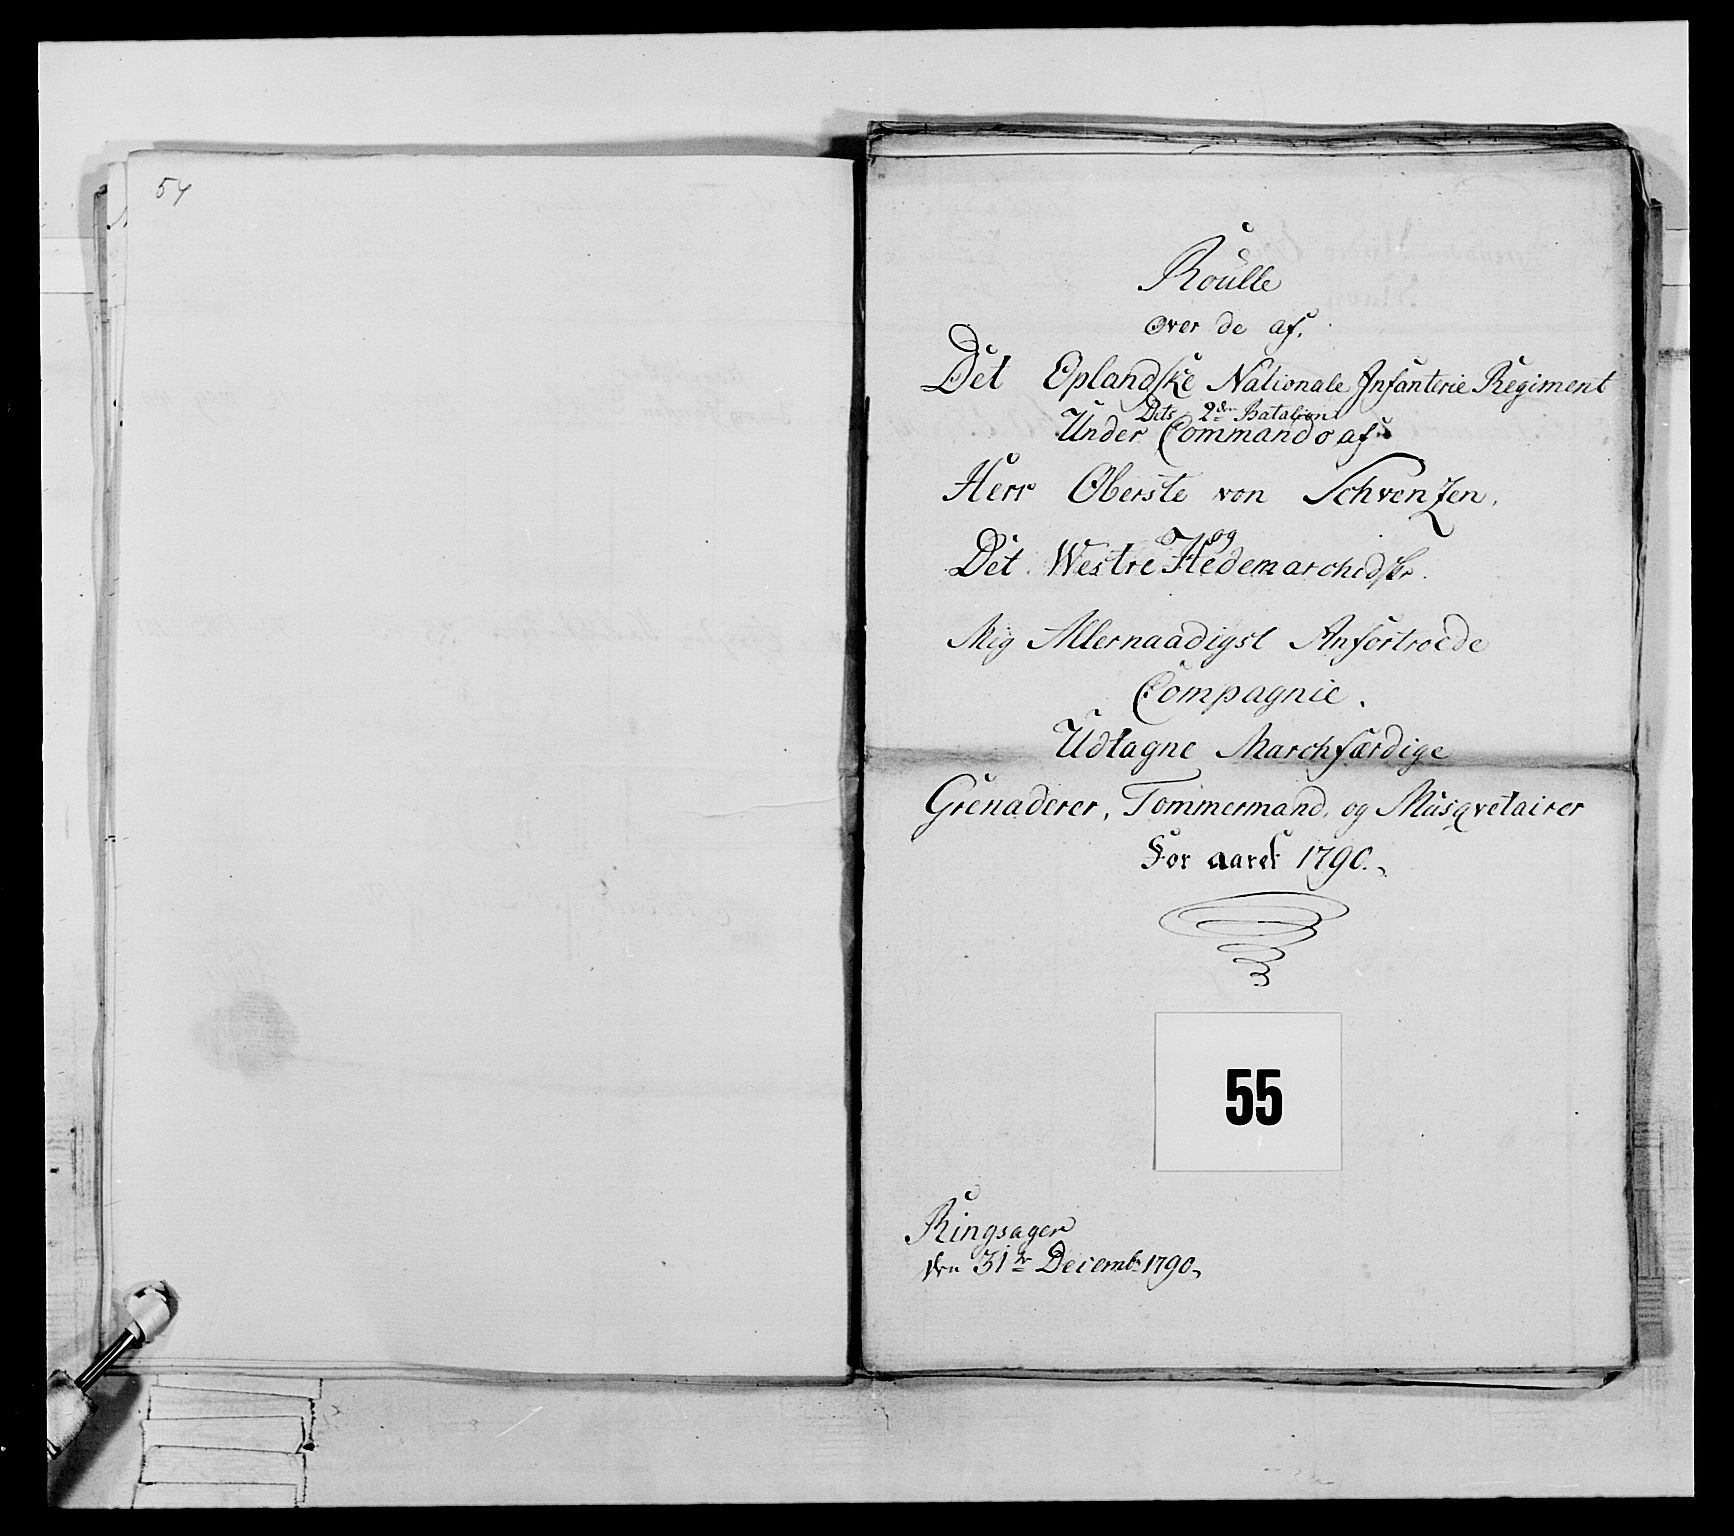 54
Roulle
over de af.
Det Oplandske Nationale Infanterie Regiment
Dets 2den Batalion
Under Commando af
Herr Oberste von Schvenzen.
og
Det Westre Hedemarchedske
Mig Allernaadigst Anfortroede
Compagnie.
Udtagne Marchfærdige
Grenaderer, Tommermænd, og Musqvetairer
For aaret 1790.
55
Ringsager
den 31te Decembr 1790,